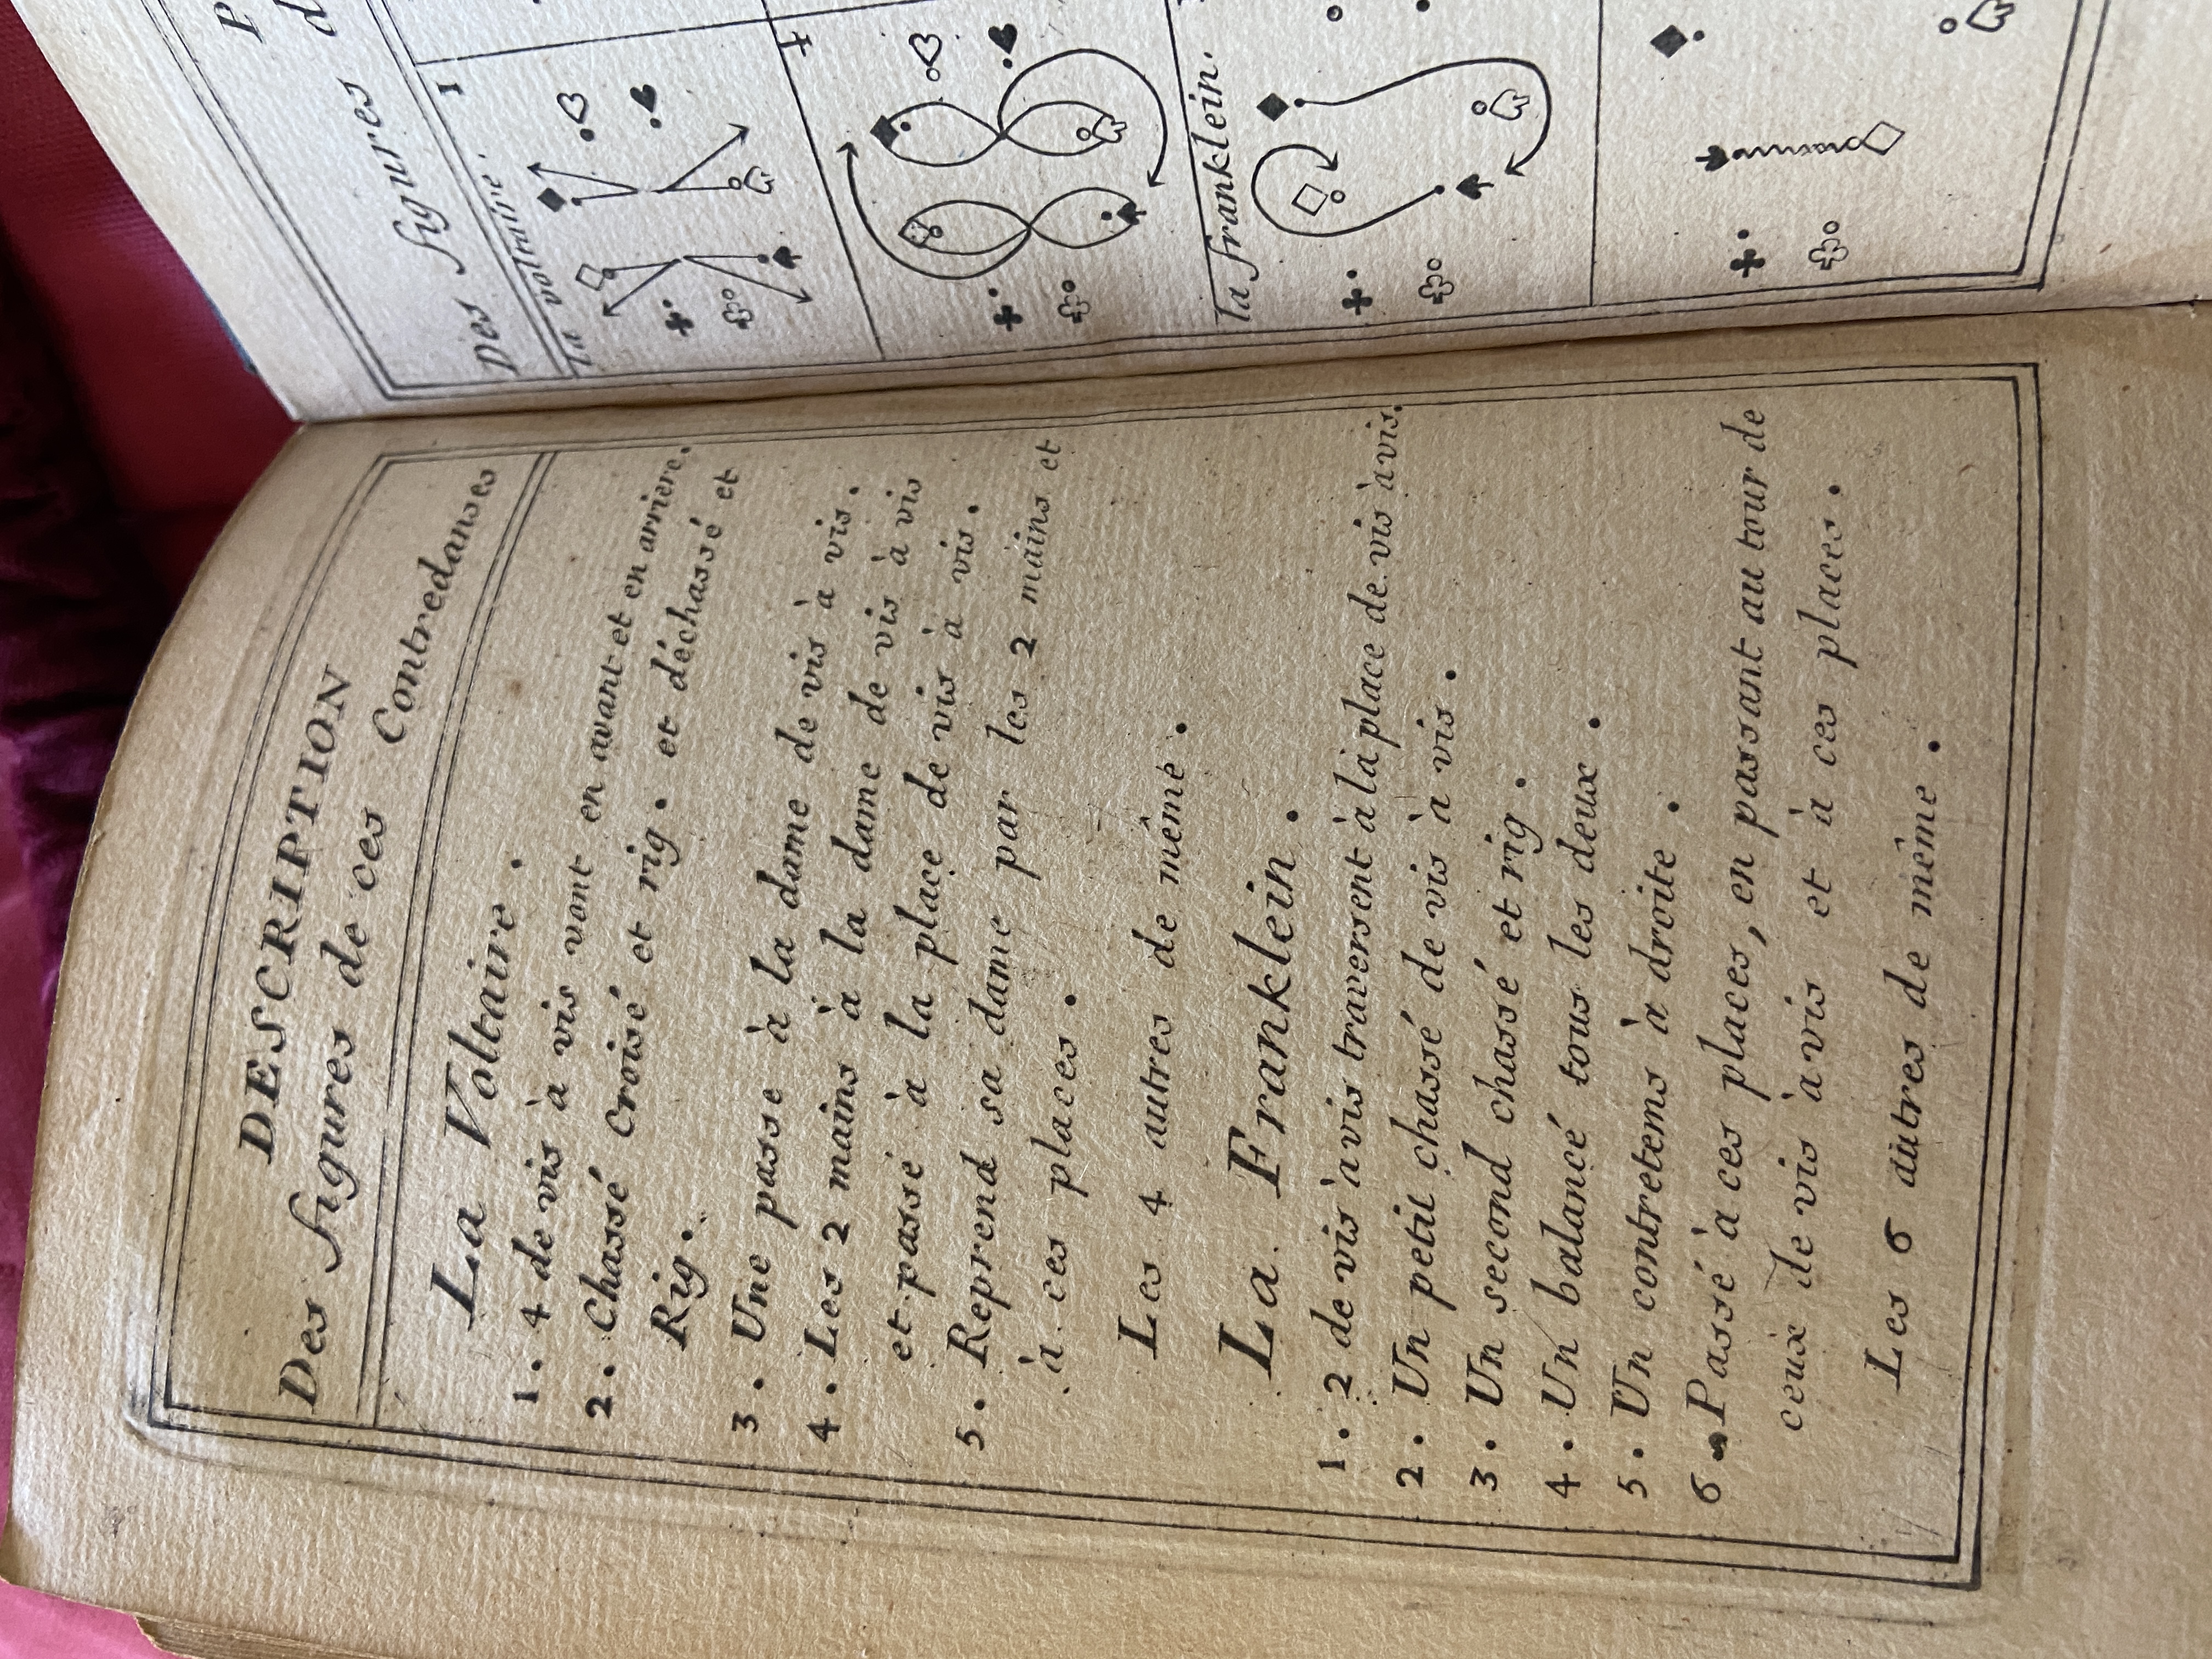 DESCRIPTION
Des figures de ces Contredanses
La Voltaire.
1. 4 de vis à vis vont en avant et en arriere.
2. Chassé Croisé et rig. et déchassé et
Rig.
3. Une passe à la dame de vis à vis.
4. Les 2 mains à la dame de vis à vis
et passé à la place de vis à vis.
5. Reprend sa dame par les 2 mains et
à ces places.
Les 4 autres de même.
La Franklein.
1. 2 de vis à vis traversent à la place de vis à vis.
2. Un petit chassé de vis à vis.
3. Un second chassé et rig.
4. Un balancé tous les deux.
5. Un contretems à droite.
6. Passé à ces places, en passant au tour de
ceux de vis à vis et à ces places.
Les 6 autres de même.
P
Des figures d
La voltaire.
1
4
la franklein.